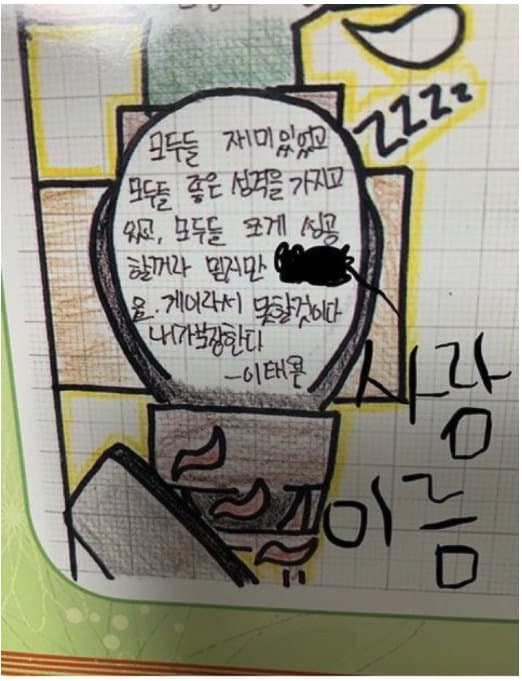 ZZZZ
모두들 재미있었고
모두들 좋은 성격을 가지고
있고, 모두들 크게 성공
할꺼라 믿지만
은. 게이라서 못할것이다
내가보장한다
-이태훈
사람
이름